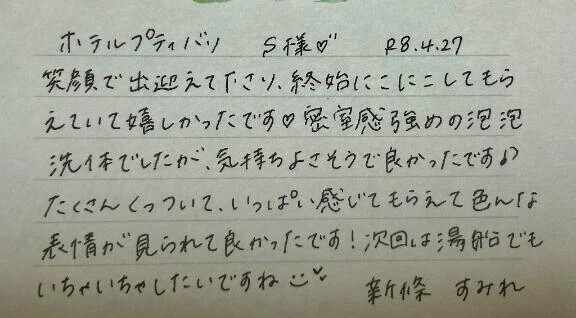 ホテルプティバリ S様♡ R8.4.27
笑顔で出迎えて下さり、終始にこにこしてもら
えていて嬉しかったです♡密室感強めの泡泡
洗体でしたが、気持ちよさそうで良かったです♪
たくさんくっついて、いっぱい感じてもらえて色んな
表情が見られて良かったです！次回は湯船でも
いちゃいちゃしたいですね
新條 すみれ